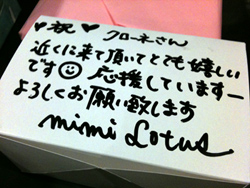 ♥祝♥ クローネさん
近くに来て頂いてとても嬉しい
です☺ 応援していますー
よろしくお願い致します
mimi Lotus